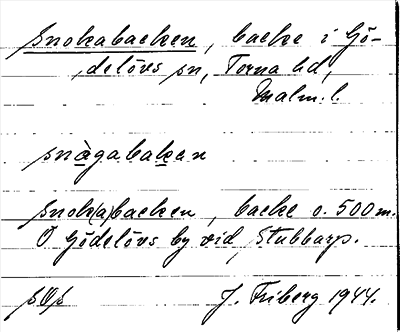 Snokabacken, backe i Gö-
delövs sn, Torna hd,
Malm. l.
snàgabakan
Snok(a)backen, backe o. 500 m.
O Gödelövs by vid Stubbarp.
J. Friberg 1944.